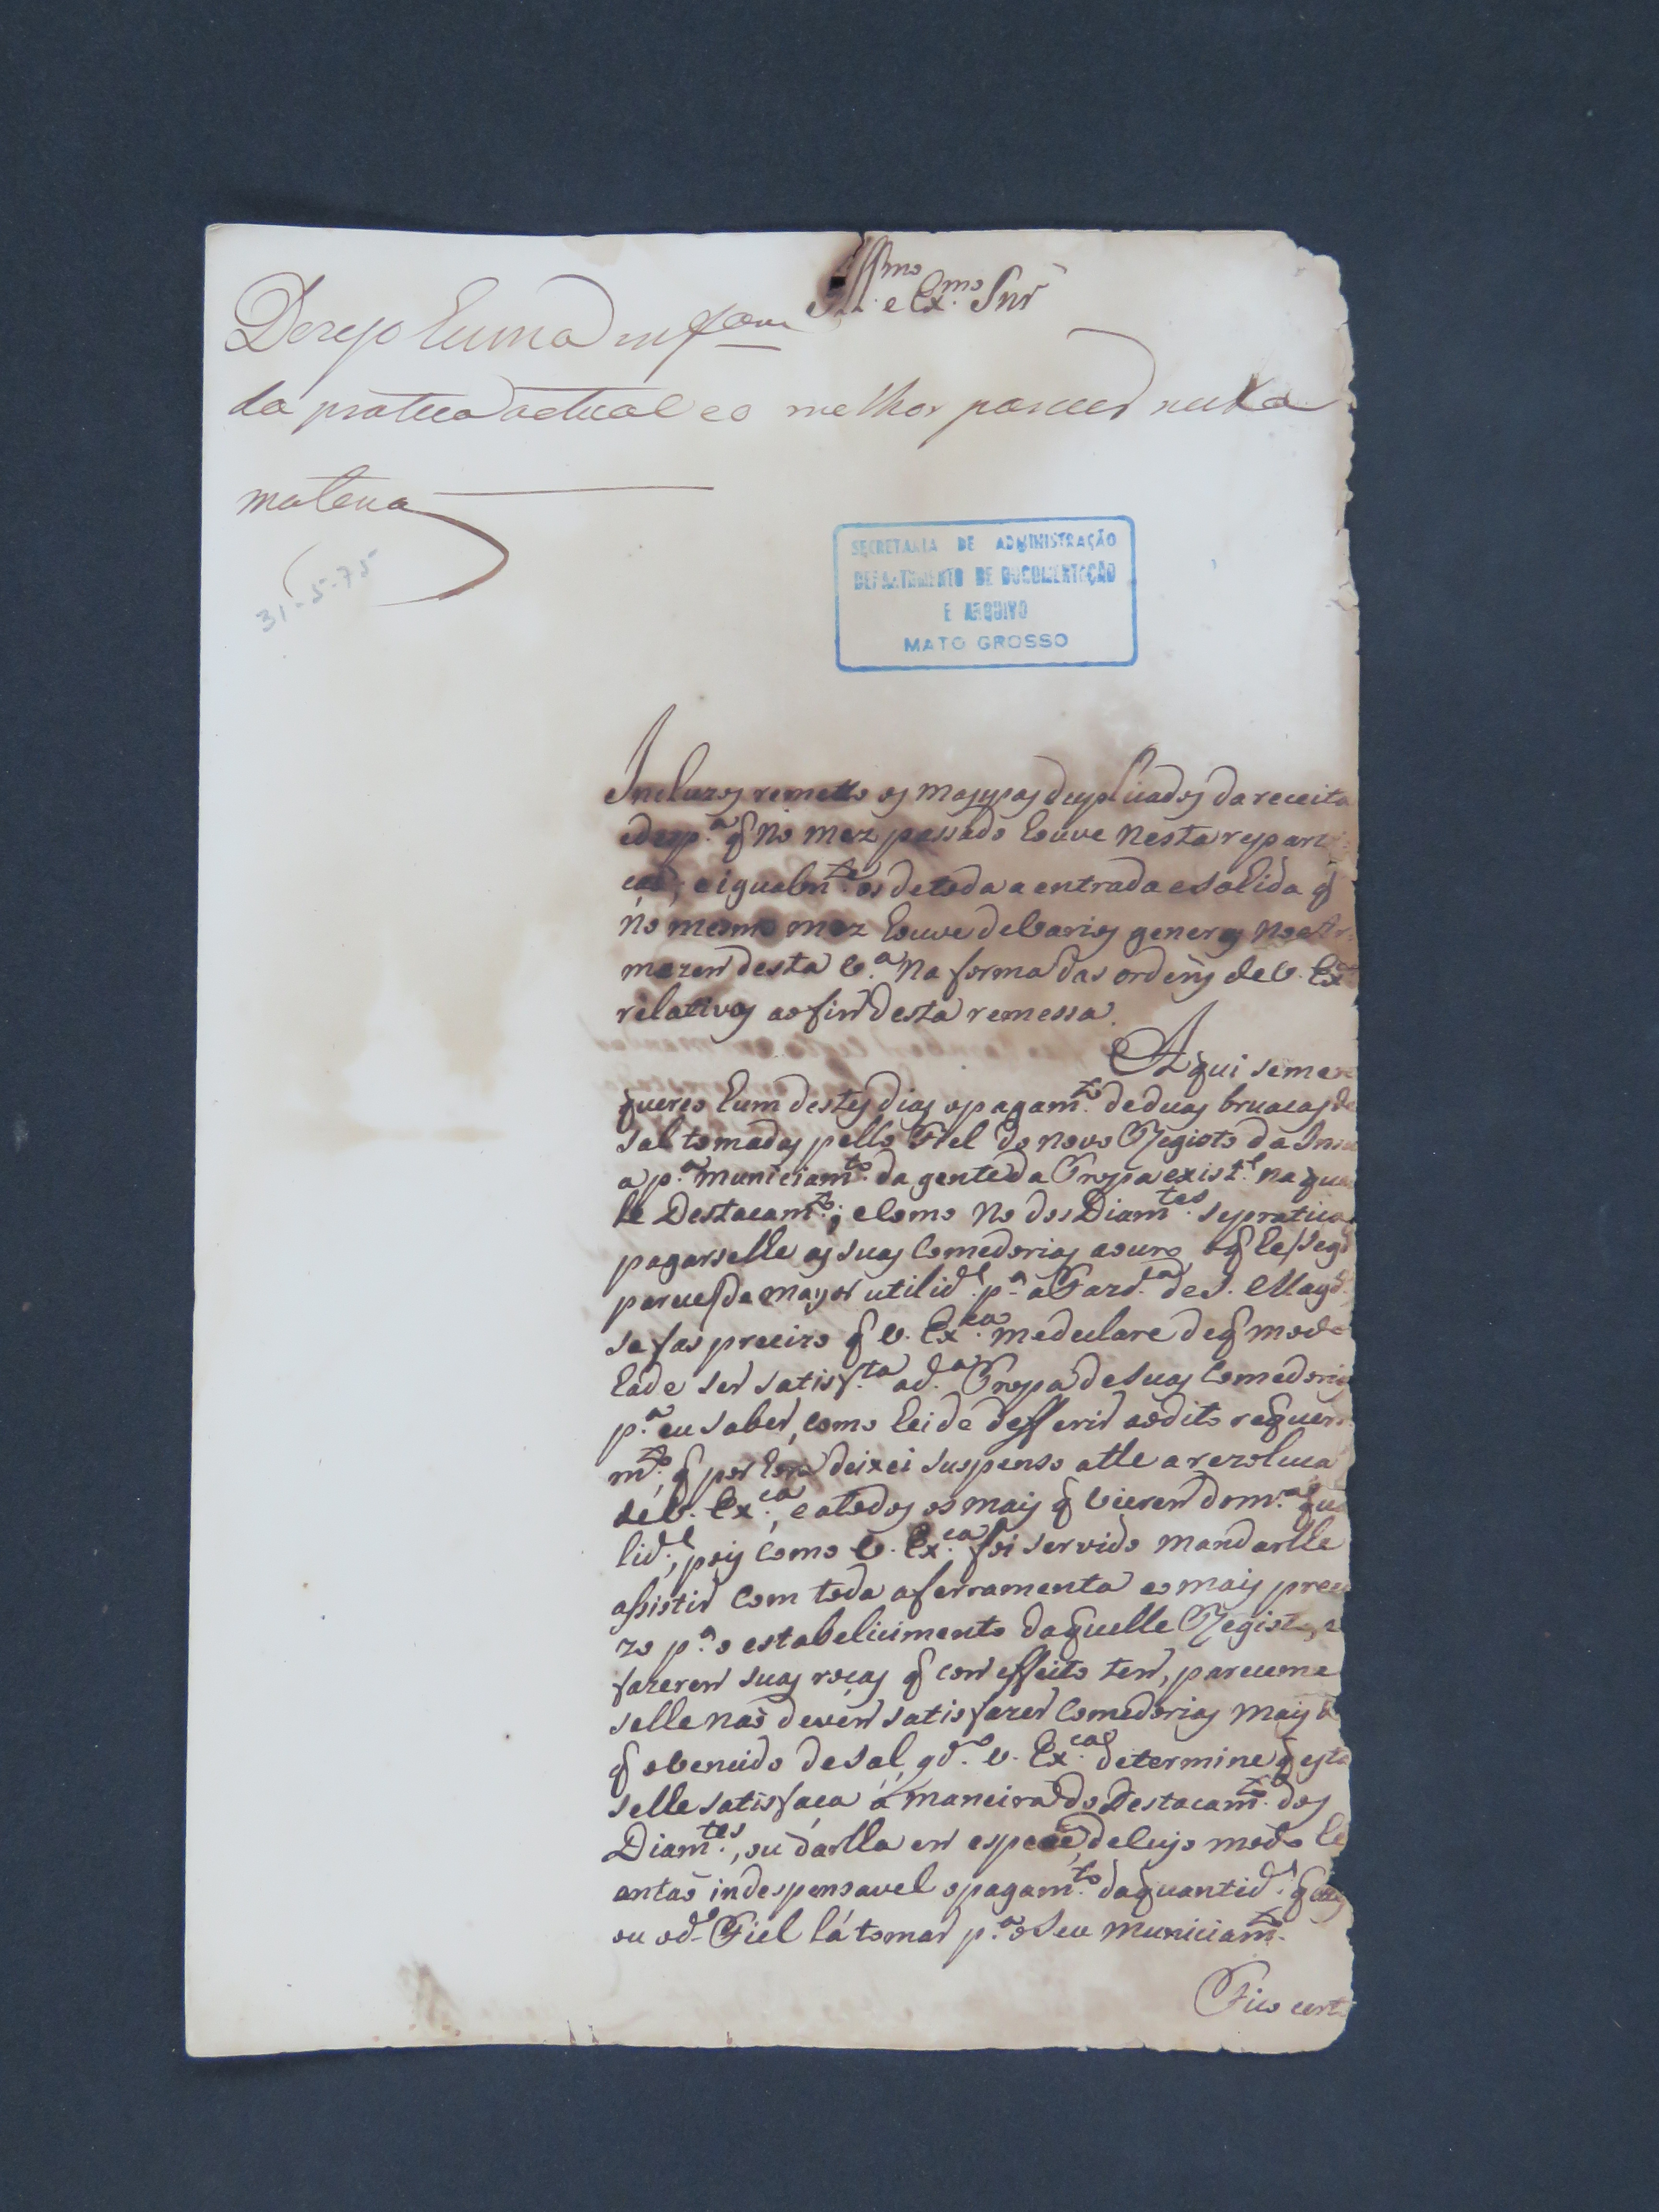 Ill.mo e Ex.mo Snr̃
Dezejo huma inf.am
da pratica actual e o melhor parecer nesta
materia
31-5-75
SECRETARIA DE ADMINISTRAÇÃO
DEPARTAMENTO DE DOCUMENTAÇÃO
E ARQUIVO
MATO GROSSO
Incluzos remetto os mappas duplicados da receita
e desp.a q̃ no mez passado houve nesta reparti
çaõ; e igualm.te os de toda a entrada e sahida q̃
no mesmo mez houve de varios generos no Ar
mazem desta V.a na forma das ordens de V. Ex.a
relativas ao fim desta remessa.
Aqui se me re
quereo hum destes dias o pagam.to de duas bruacas de
sal tomadas pello Fiel do novo Registo da Insu
a p.a municiam.to da gente da Tropa exist.e naquel
le Destacam.to; e como no dos Diam.tes se pratica
pagarselhe as suas comedorias a ouro o q̃ he, seg.do
parece, de mayor utilid.e p.a a Fazd.a de S. Mag.e
se fas precizo q̃ V. Ex.ca me declare de q̃ modo
hade ser satisf.ta a d.a Tropa de suas comedorias
p.a eu saber, como heide defferir ao dito requeri
m.to, q̃ por hora deixei suspenso athe a rezoluçaõ
de V. Ex.ca, e a todos os mais q̃ vierem da m.ma qua
lid.e; pois como V. Ex.ca foi servido mandarlhe
assistir com toda a ferramenta e o mais preci
zo p.a o estabelicimento daquelle Registo, e
fazerem suas roças q̃ com effeito tem, pareceme
selhe naõ devem satisfazer comedorias mais
q̃ o vencido de sal, qd.o V. Ex.ca determine q̃ esta
selhe satisfaça á maneira do Destacam.to dos
Diam.tes, ou darlha em especie, de cujo modo he
entaõ indespensavel o pagam.to da quantid.e q̃
ou o d.o Fiel lá tomar p.a o seu municiam.to
Fico certo